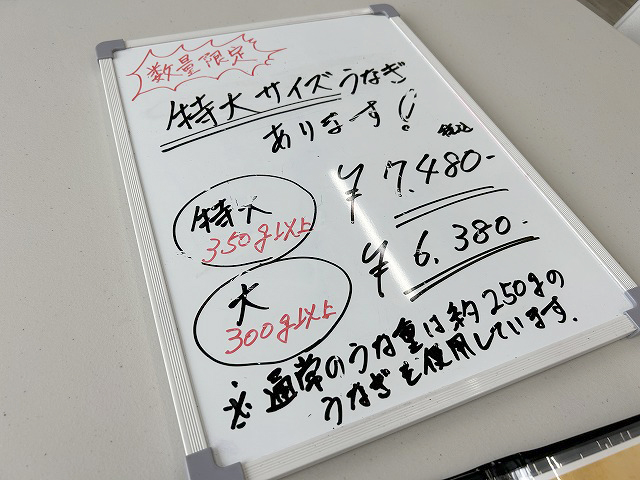 数量限定
特大サイズうなぎ
あります!!
税込
特大 ¥7,480-
350g以上
大 ¥6,380-
300g以上
※通常のうな重は約250gの
うなぎを使用しています.